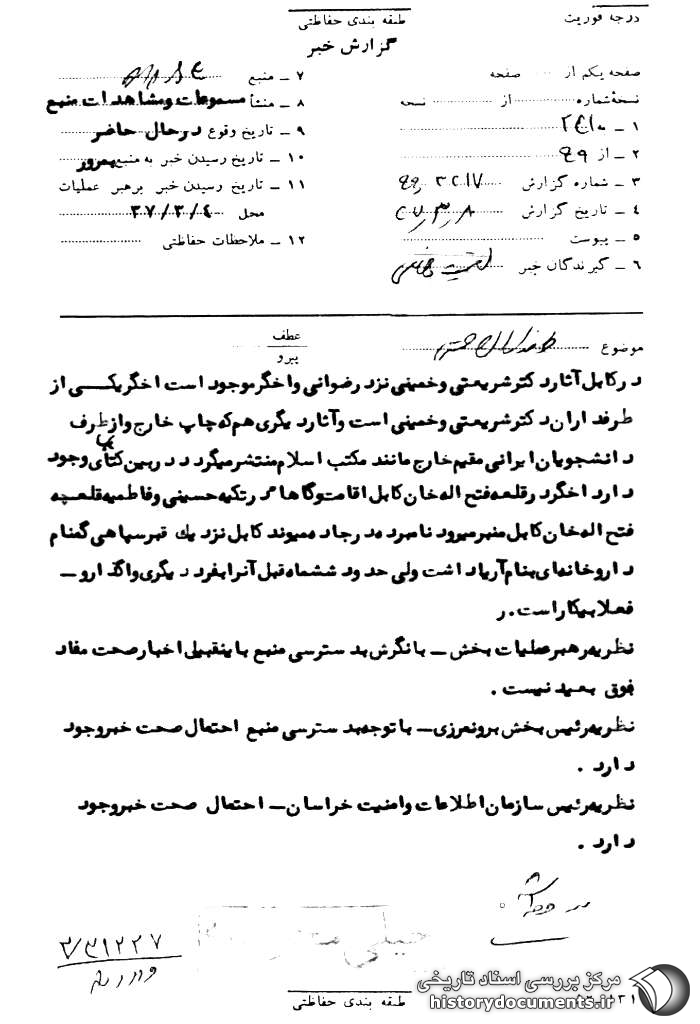 درجه فوریت
طبقه بندی حفاظتی
گزارش خبر
صفحه یکم از صفحه
نسخهٔ شماره از نسخه
۱ ــ به
۲ ــ از
۳ ــ شماره گزارش
۴ ــ تاریخ گزارش
۵ ــ پیوست
۶ ــ گیرندگان خبر
۷ ــ منبع
۸ ــ منشأ مسموعات ومشاهدات منبع
۹ ــ تاریخ وقوع درحال حاضر
۱۰ ــ تاریخ رسیدن خبر به منبع بمرور
۱۱ ــ تاریخ رسیدن خبر برهبر عملیات
محل ۳۷/۳/۴
۱۲ ــ ملاحظات حفاظتی
موضوع
عطف
پیرو
درکابل آثار دکتر شریعتی وخمینی نزد رضوانی واخگر موجود است اخگر یکی از
طرفداران دکتر شریعتی وخمینی است وآثار دیگری هم که چاپ خارج واز طرف
دانشجویان ایرانی مقیم خارج مانند مکتب اسلام منتشر میگردد دربین کتابهای وجود
دارد اخگر در قلعه فتح اله خان کابل اقامت وگاها در تکیه حسینی وفاطمیه قلعچه
فتح اله خان کابل منبر میرود نامبرده در جاده میوند کابل نزدیك قبر سپاهی گمنام
داروخانه ای بنام آریا داشت ولی حدود ششماه قبل آنرا بفرد دیگری واگذارو ــ
فعلا بیکار است. ر
نظریه رهبر عملیات بخش ــ با نگرش بدسترسی منبع باینقبیل اخبار صحت مفاد
فوق بعید نیست .
نظریه رئیس بخش برونمرزی ــ باتوجه بدسترسی منبع احتمال صحت خبر وجود
دارد .
نظریه رئیس سازمان اطلاعات وامنیت خراسان ــ احتمال صحت خبر وجود
دارد .
۳/۳۱۲۲۷
طبقه بندی حفاظتی
مرکز بررسی اسناد تاریخی
historydocuments.ir